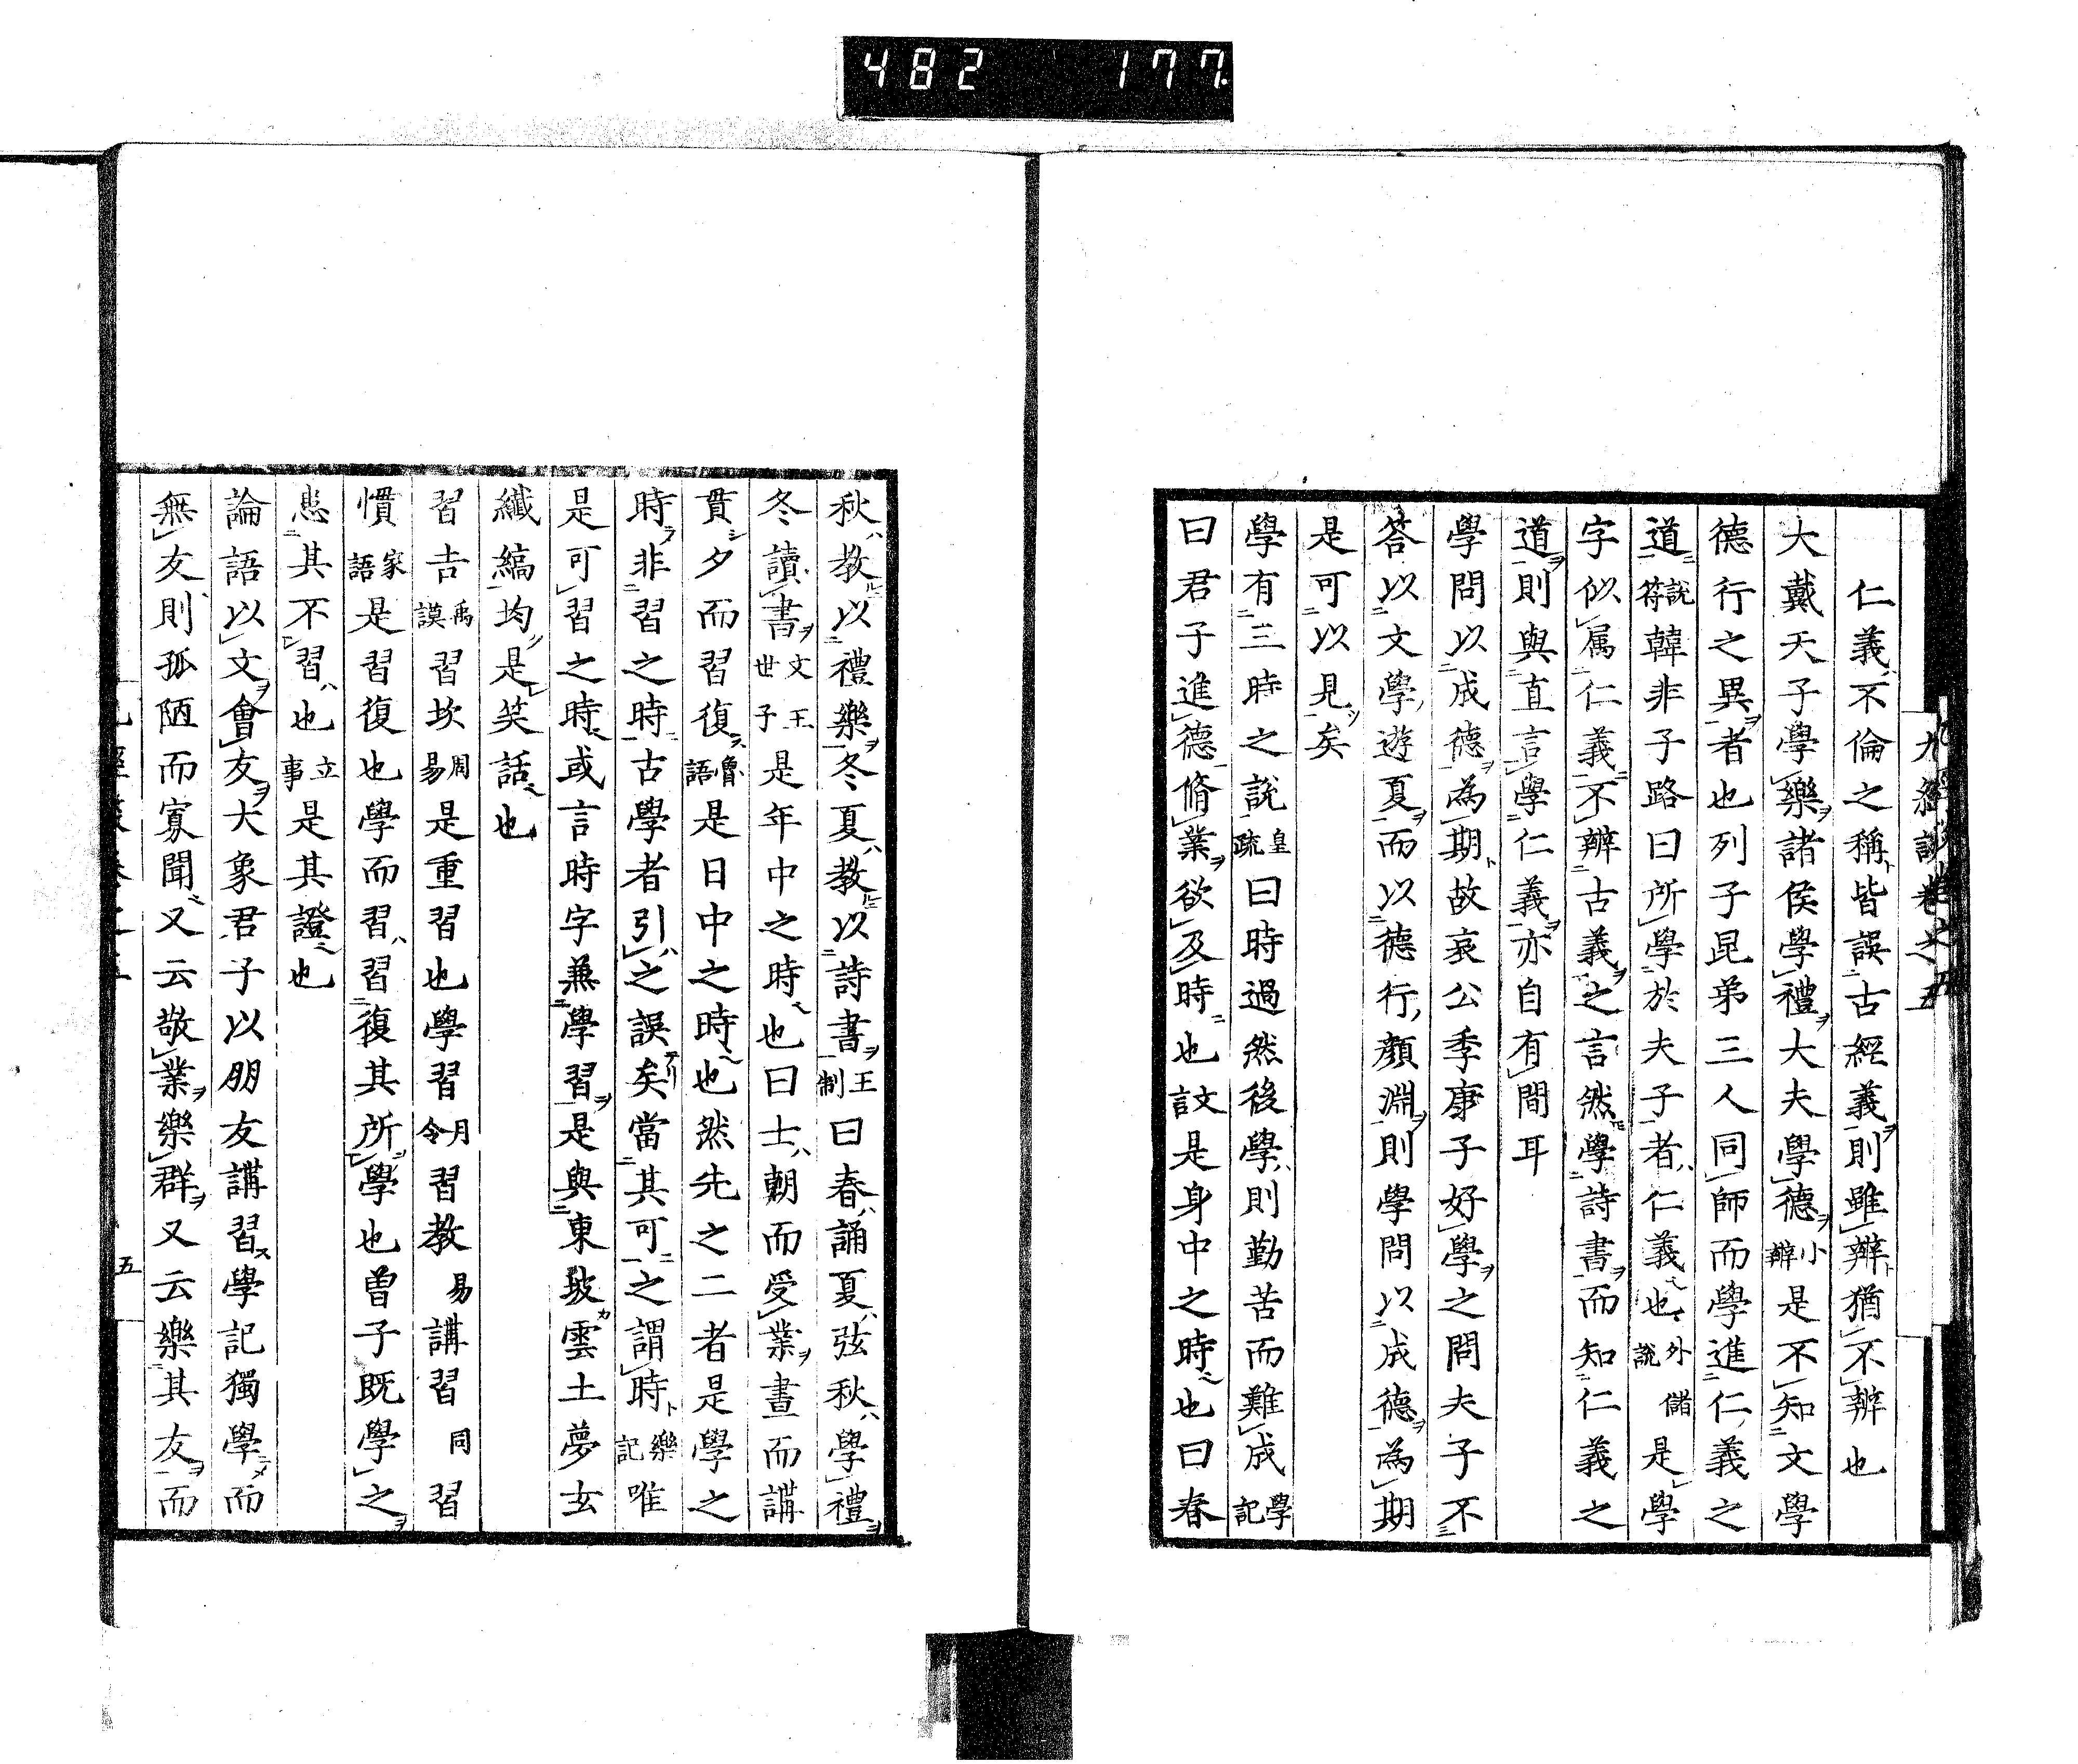 482 177
仁義不倫之稱皆誤古經義則雖辨猶不辨也
大戴天子學樂諸侯學禮大夫學德小辨是不知文學
德行之異者也列子昆弟三人同師而學進仁義之
道說符韓非子路曰所學於夫子者仁義也外儲說是學
字似属仁義不辨古義之言然學詩書而知仁義之
道則與直言學仁義亦自有間耳
學問以成德為期故哀公季康子好學之問夫子不
答以文學遊夏而以德行顔淵則學問以成德為期
是可以見矣
學有三時之說皇疏曰時過然後學則勤苦而難成學記
曰君子進德脩業欲及時也文言是身中之時也曰春
秋教以禮樂冬夏教以詩書王制曰春誦夏弦秋學禮
冬讀書文王世子是年中之時也曰士朝而受業晝而講
貫夕而習復魯語是日中之時也然先之二者是學之
時非習之時古學者引之誤矣當其可之謂時樂記唯
是可習之時或言時字兼學習是與東坡雲土夢玄
纎縞均是笑話也
習吉禹謨習坎周易是重習也學習月令習教易講習同習
慣家語是習復也學而習習復其所學也曽子既學之
患其不習也立事是其證也
論語以文會友大象君子以朋友講習學記獨學而
無友則孤陋而寡聞又云敬業樂群又云樂其友而
五